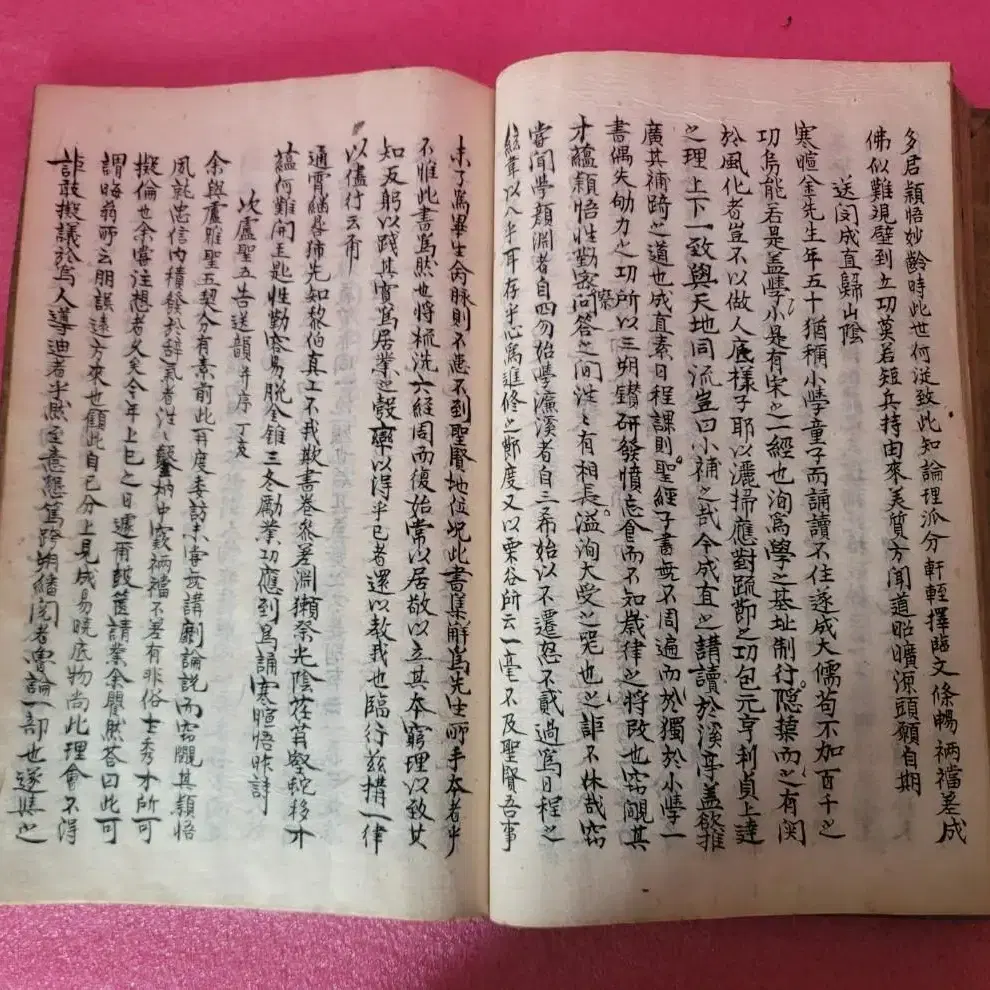 多君穎悟妙齡時此世何從致此知論理派分軒輊擇臨文條暢裲襠差成
佛似難現壁到立功莫若短兵持由來美質方聞道昭曠源頭願自期
送閔成直歸山陰
寒暄金先生年五十猶稱小學童子而誦讀不住遂成大儒苟不加百千之
功烏能若是盖學小是有宋之一經也洵爲學之基址制行隱蘖而之有関
於風化者豈不以做人底樣子耶以灑掃應對疏節之功包元亨利貞上達
之理上下一致與天地同流豈曰小補之哉今成直之講讀於溪亭盖欲推
廣其補跨之道也成直素日程課則聖經子書無不周遍而於獨於小學一
書偶失劬力之功所以三朔鑚研發憤忘食而不知歲律之將改也窃覸其
才蘊穎悟性勤密問答之間徃々有相長溢洵大受之哭也之誰不休哉窃
當聞學顔淵者自四勿始學濂溪者自三希始以不遷怒不貳過爲日程之
絃韋以入乎耳存乎心爲進修之節度又以栗谷所云一毫不及聖賢吾事
未了爲畢生侖脉則不患不到聖賢地位况此書集解爲先生所手本者乎
不惟此書爲然也將梳洗六經周而復始常以居敬以立其本窮理以致其
知反躬以踐其實爲居業之彀率以得乎已者還以教我也臨行玆搆一律
以儘行云尓
通霄繼晷犻先知黎伯真工不我欺書卷叅差淵獺祭光陰荏苒壑蛇移才
蘊何難開玉匙性勤容易脱金錐三冬勵業功應到爲誦寒暄悟昨詩
次盧聖五告送韻并序 丁亥
余與盧雅聖五契分有素前此再度委訪未嘗無講劘論說而窃覸其穎悟
夙就忠信内積發於辭氣者徃々鑿枘中窾裲襠不差有非俗士秀才所可
擬倫也余寤注想者久矣今年上巳之日遽爾鼓篋請業余闓然荅曰此可
謂晦翁所云朋誤遠方來也顧此自已分上見成易曉底物尚此理會不得
詎敢擬議於爲人導迪者乎然聖意懇篤跨朔繙閱者魯論一部也遂集之